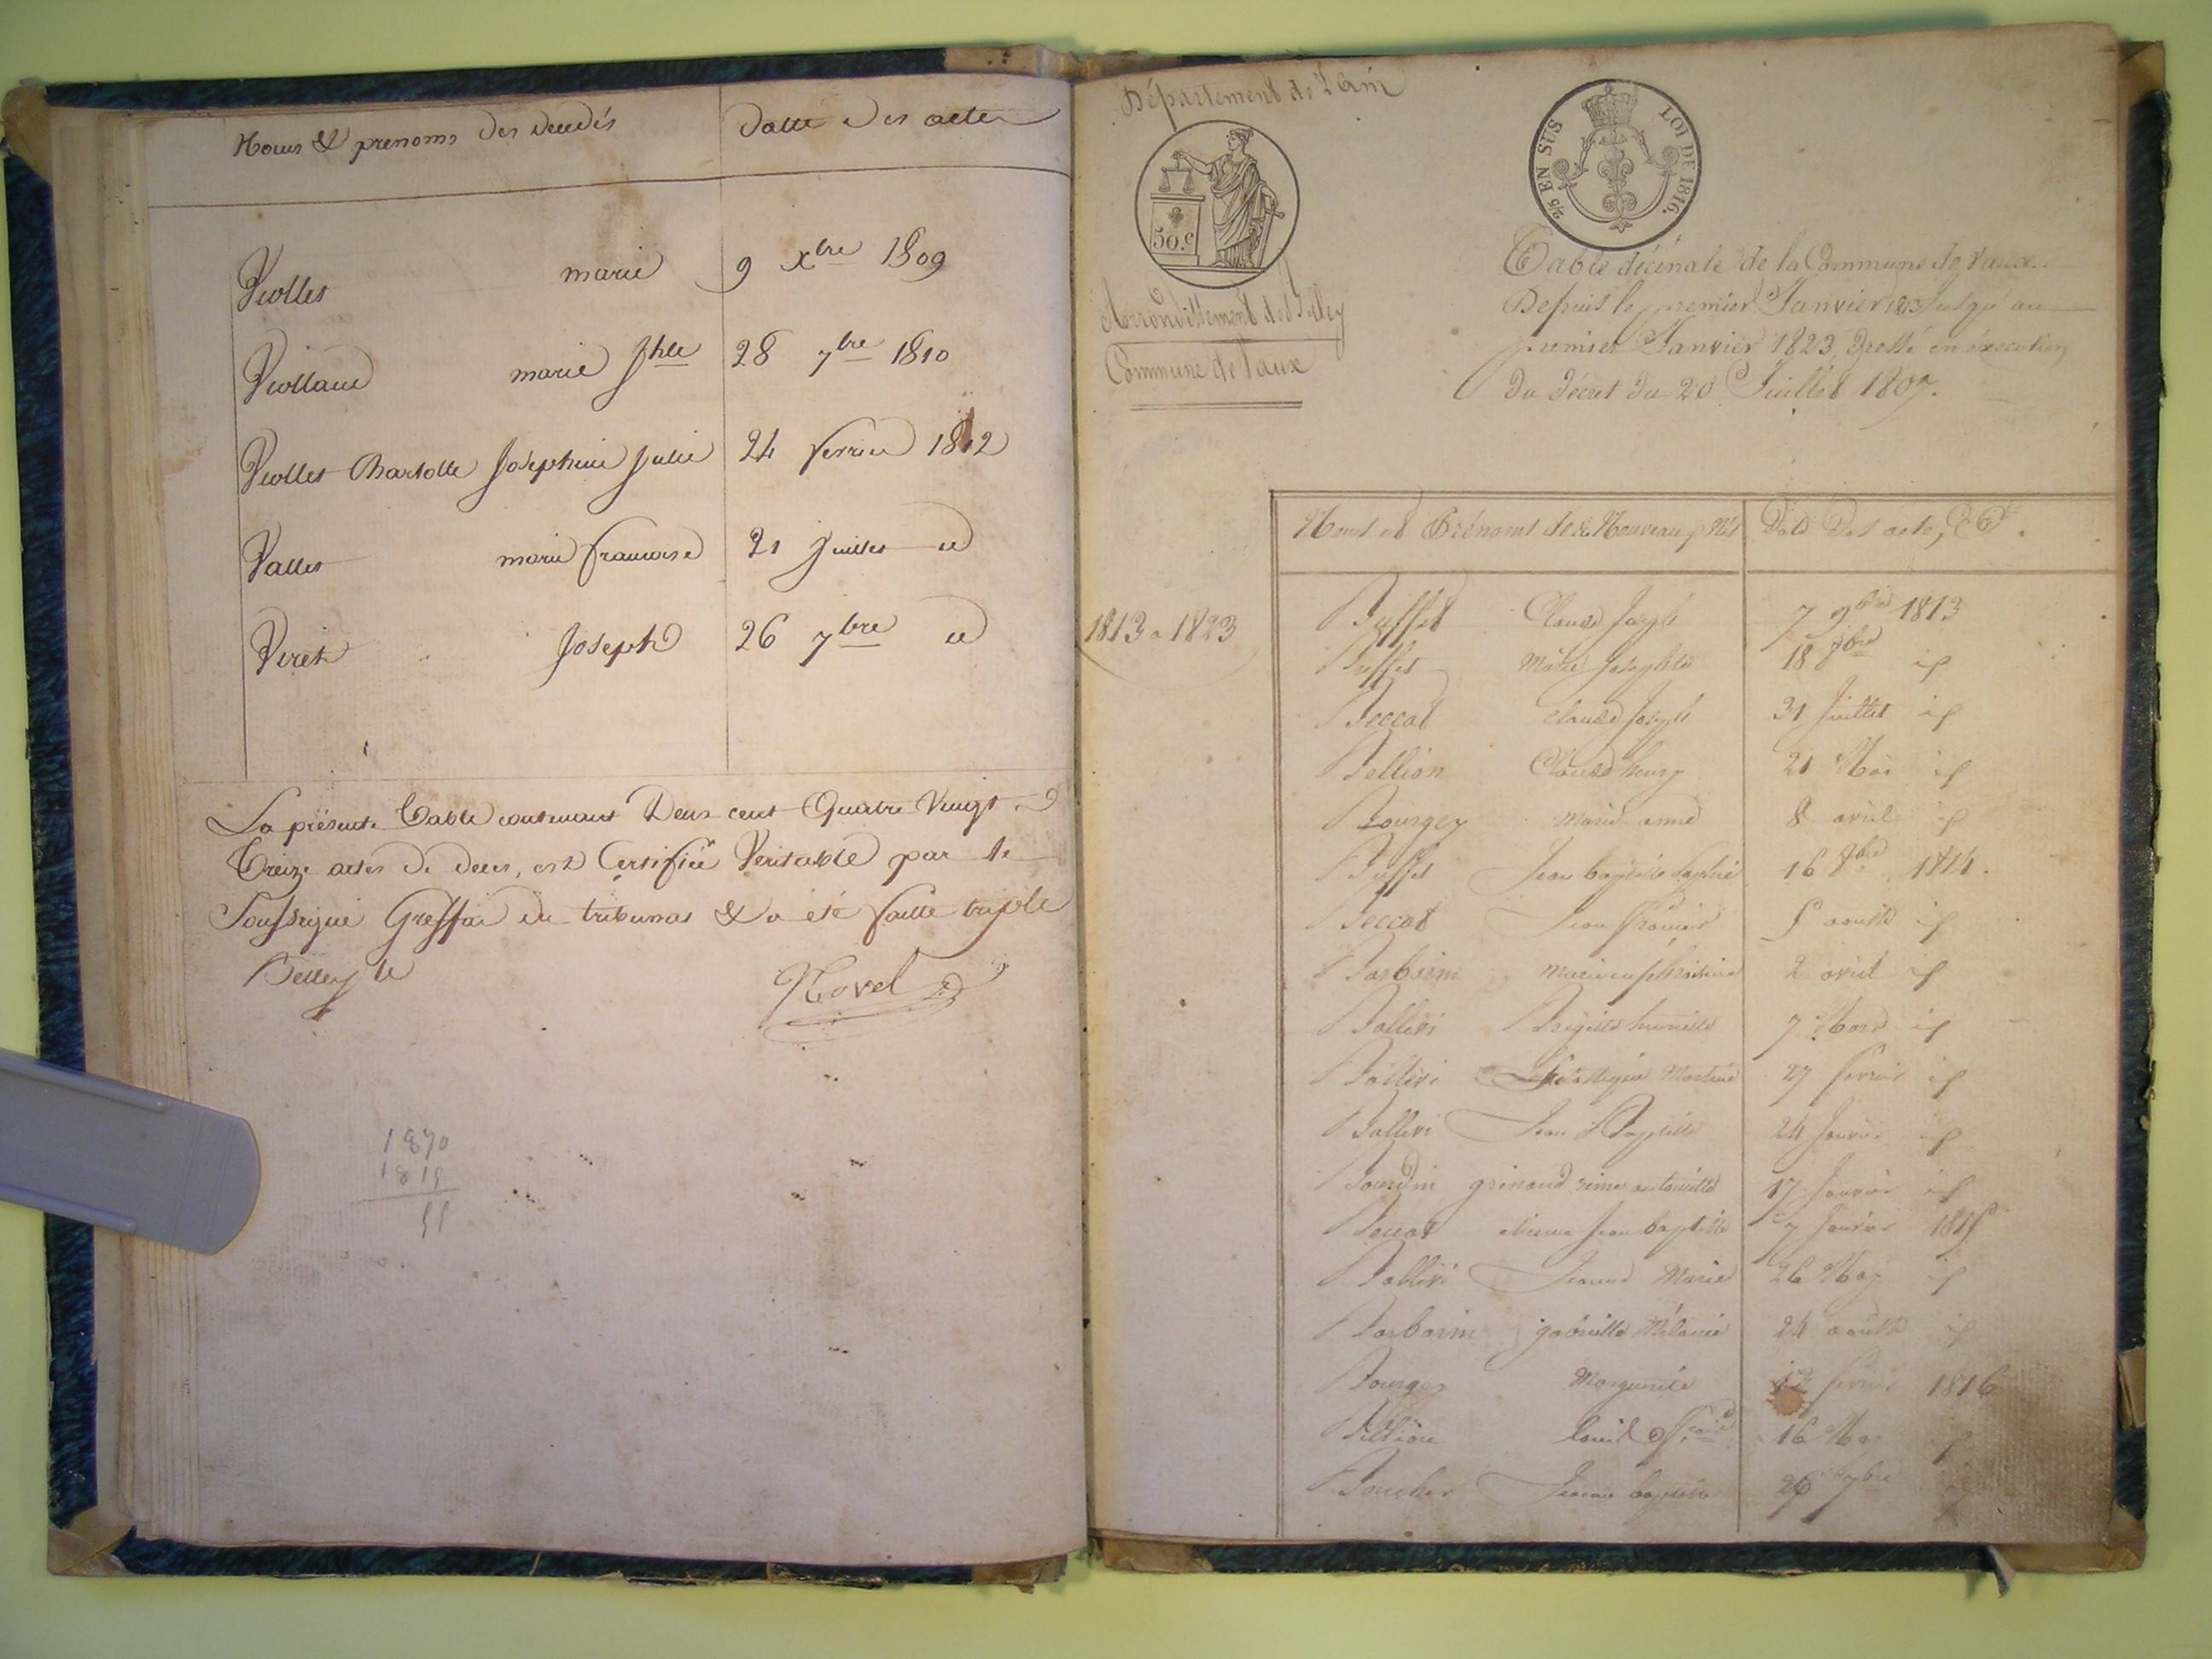 Noms & prenoms des decedés datte des actes
Viollet marie 9 xbre 1809
Viollaud marie Jhte 28 7bre 1810
Viollet Charlotte Josephine Julie 24 fevrier 1812
Vallet marie francoise 21 Juillet id
Viret Joseph 26 7bre id
La présente Table contenant Deux cent Quatre Vingt
Treize actes de deces, est Certifiée Veritable par le
Soussigné Greffier du tribunal & a été faitte triple
Belley le Novel
1870
1815
55
Département de l'Ain
50.c
2/5 EN SUS LOI DE 1816.
Arrondissement de Belley
Commune de Vaux
Table décénale de la Commune de Vaux
Depuis le premier Janvier 1813 Jusqu'au
premier Janvier 1823, Dressé en éxecution
du décret du 20 Juillet 1807.
Noms et Prénoms des Nouveaux Nés Date des actes,
1813 a 1823
Buffet Claude Joseph 7 9bre 1813
Buffet Marie Josephte 18 8bre id
Beccat Claude Joseph 31 Juillet id
Bellion Claude henry 21 Mai id
Bourgey Marie anne 8 avril id
Buffet Jean baptiste 16 8bre 1814.
Beccat Jean 5 aoust id
Barbarin Marie 2 avril id
Balleri 7 Mars id
Balleri Martine 27 fevrier id
Balleri Jean Baptiste 24 Janvier id
Bourdin antoinette 17 Janvier id
Beccat etienne Jean baptiste 7 Janvier 1815
Balleri Jeanne Marie 26 May id
Barbarin gabrielle Mélanie 24 aoust id
Bourgey Marguerite fevrier 1816
Bellion Louis 16 Mai id
Boucher Jean baptiste 26 7bre id